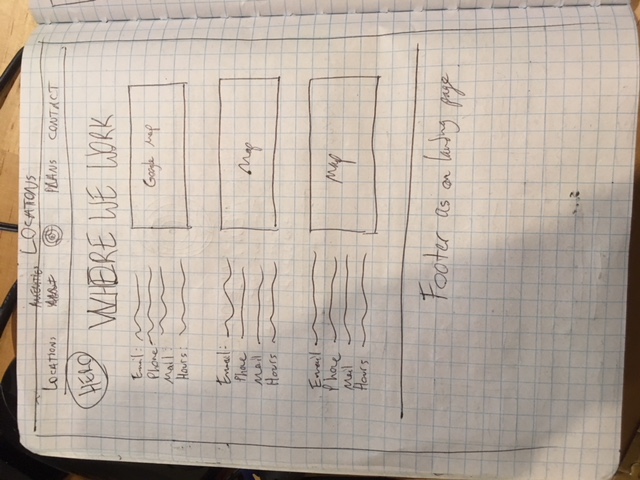 LOCATIONS
LOCATIONS PLANS CONTACT
HERO
WHERE WE WORK
Email:
Phone
Mail:
Hours:
Google Map
Email:
Phone
Mail
Hours
Map
Email
Phone
Mail
Hours
Map
Footer as on landing page